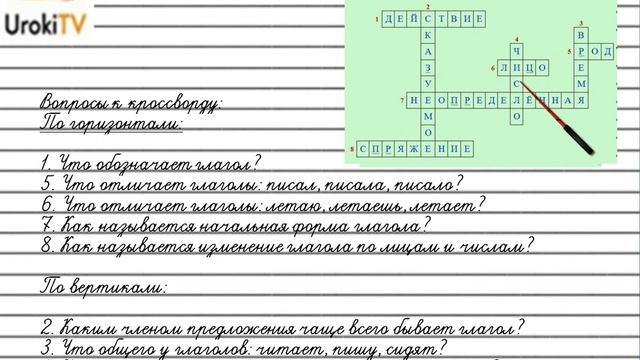 UrokiTV
1 ДЕЙСТВИЕ
2 СКАЗУЕМОЕ
3 ВРЕМЯ
4 ЧИСЛО
5 РОД
6 ЛИЦО
7 НЕОПРЕДЕЛЁННАЯ
8 СПРЯЖЕНИЕ
Вопросы к кроссворду:
По горизонтали:
1. Что обозначает глагол?
5. Что отличает глаголы: писал, писала, писало?
6. Что отличает глаголы: летаю, летаешь, летает?
7. Как называется начальная форма глагола?
8. Как называется изменение глагола по лицам и числам?
По вертикали:
2. Каким членом предложения чаще всего бывает глагол?
3. Что общего у глаголов: читает, пишу, сидят?